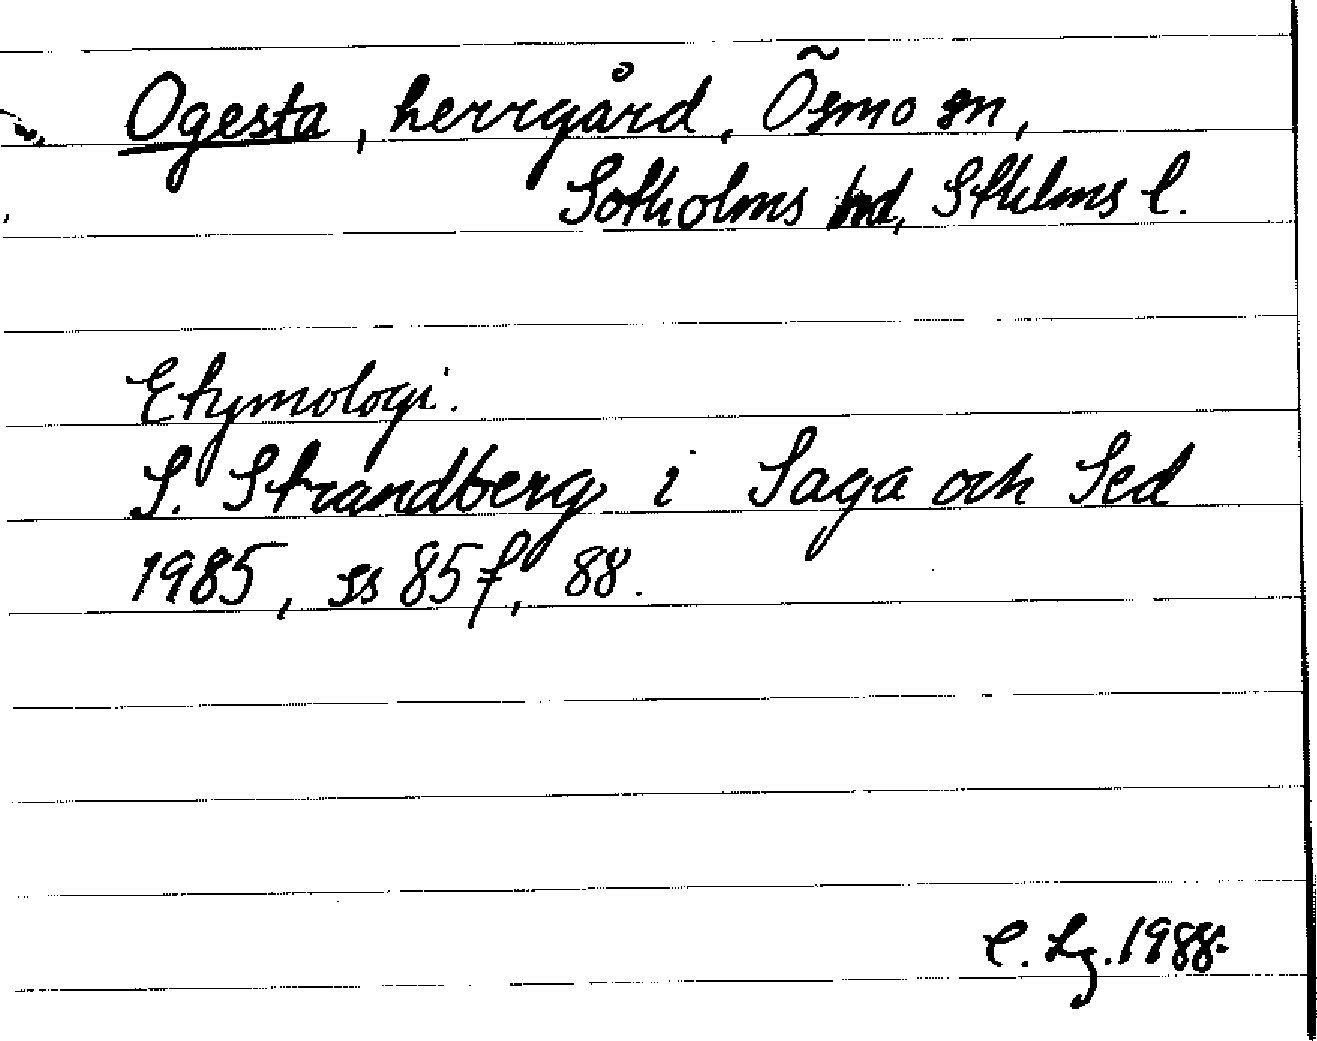 Ogesta, herrgård, Ösmo sn,
Sotholms hd, Sthlms l.
Etymologi.
S. Strandberg i Saga och Sed
1985, ss 85 f, 88.
C. Lg. 1988.